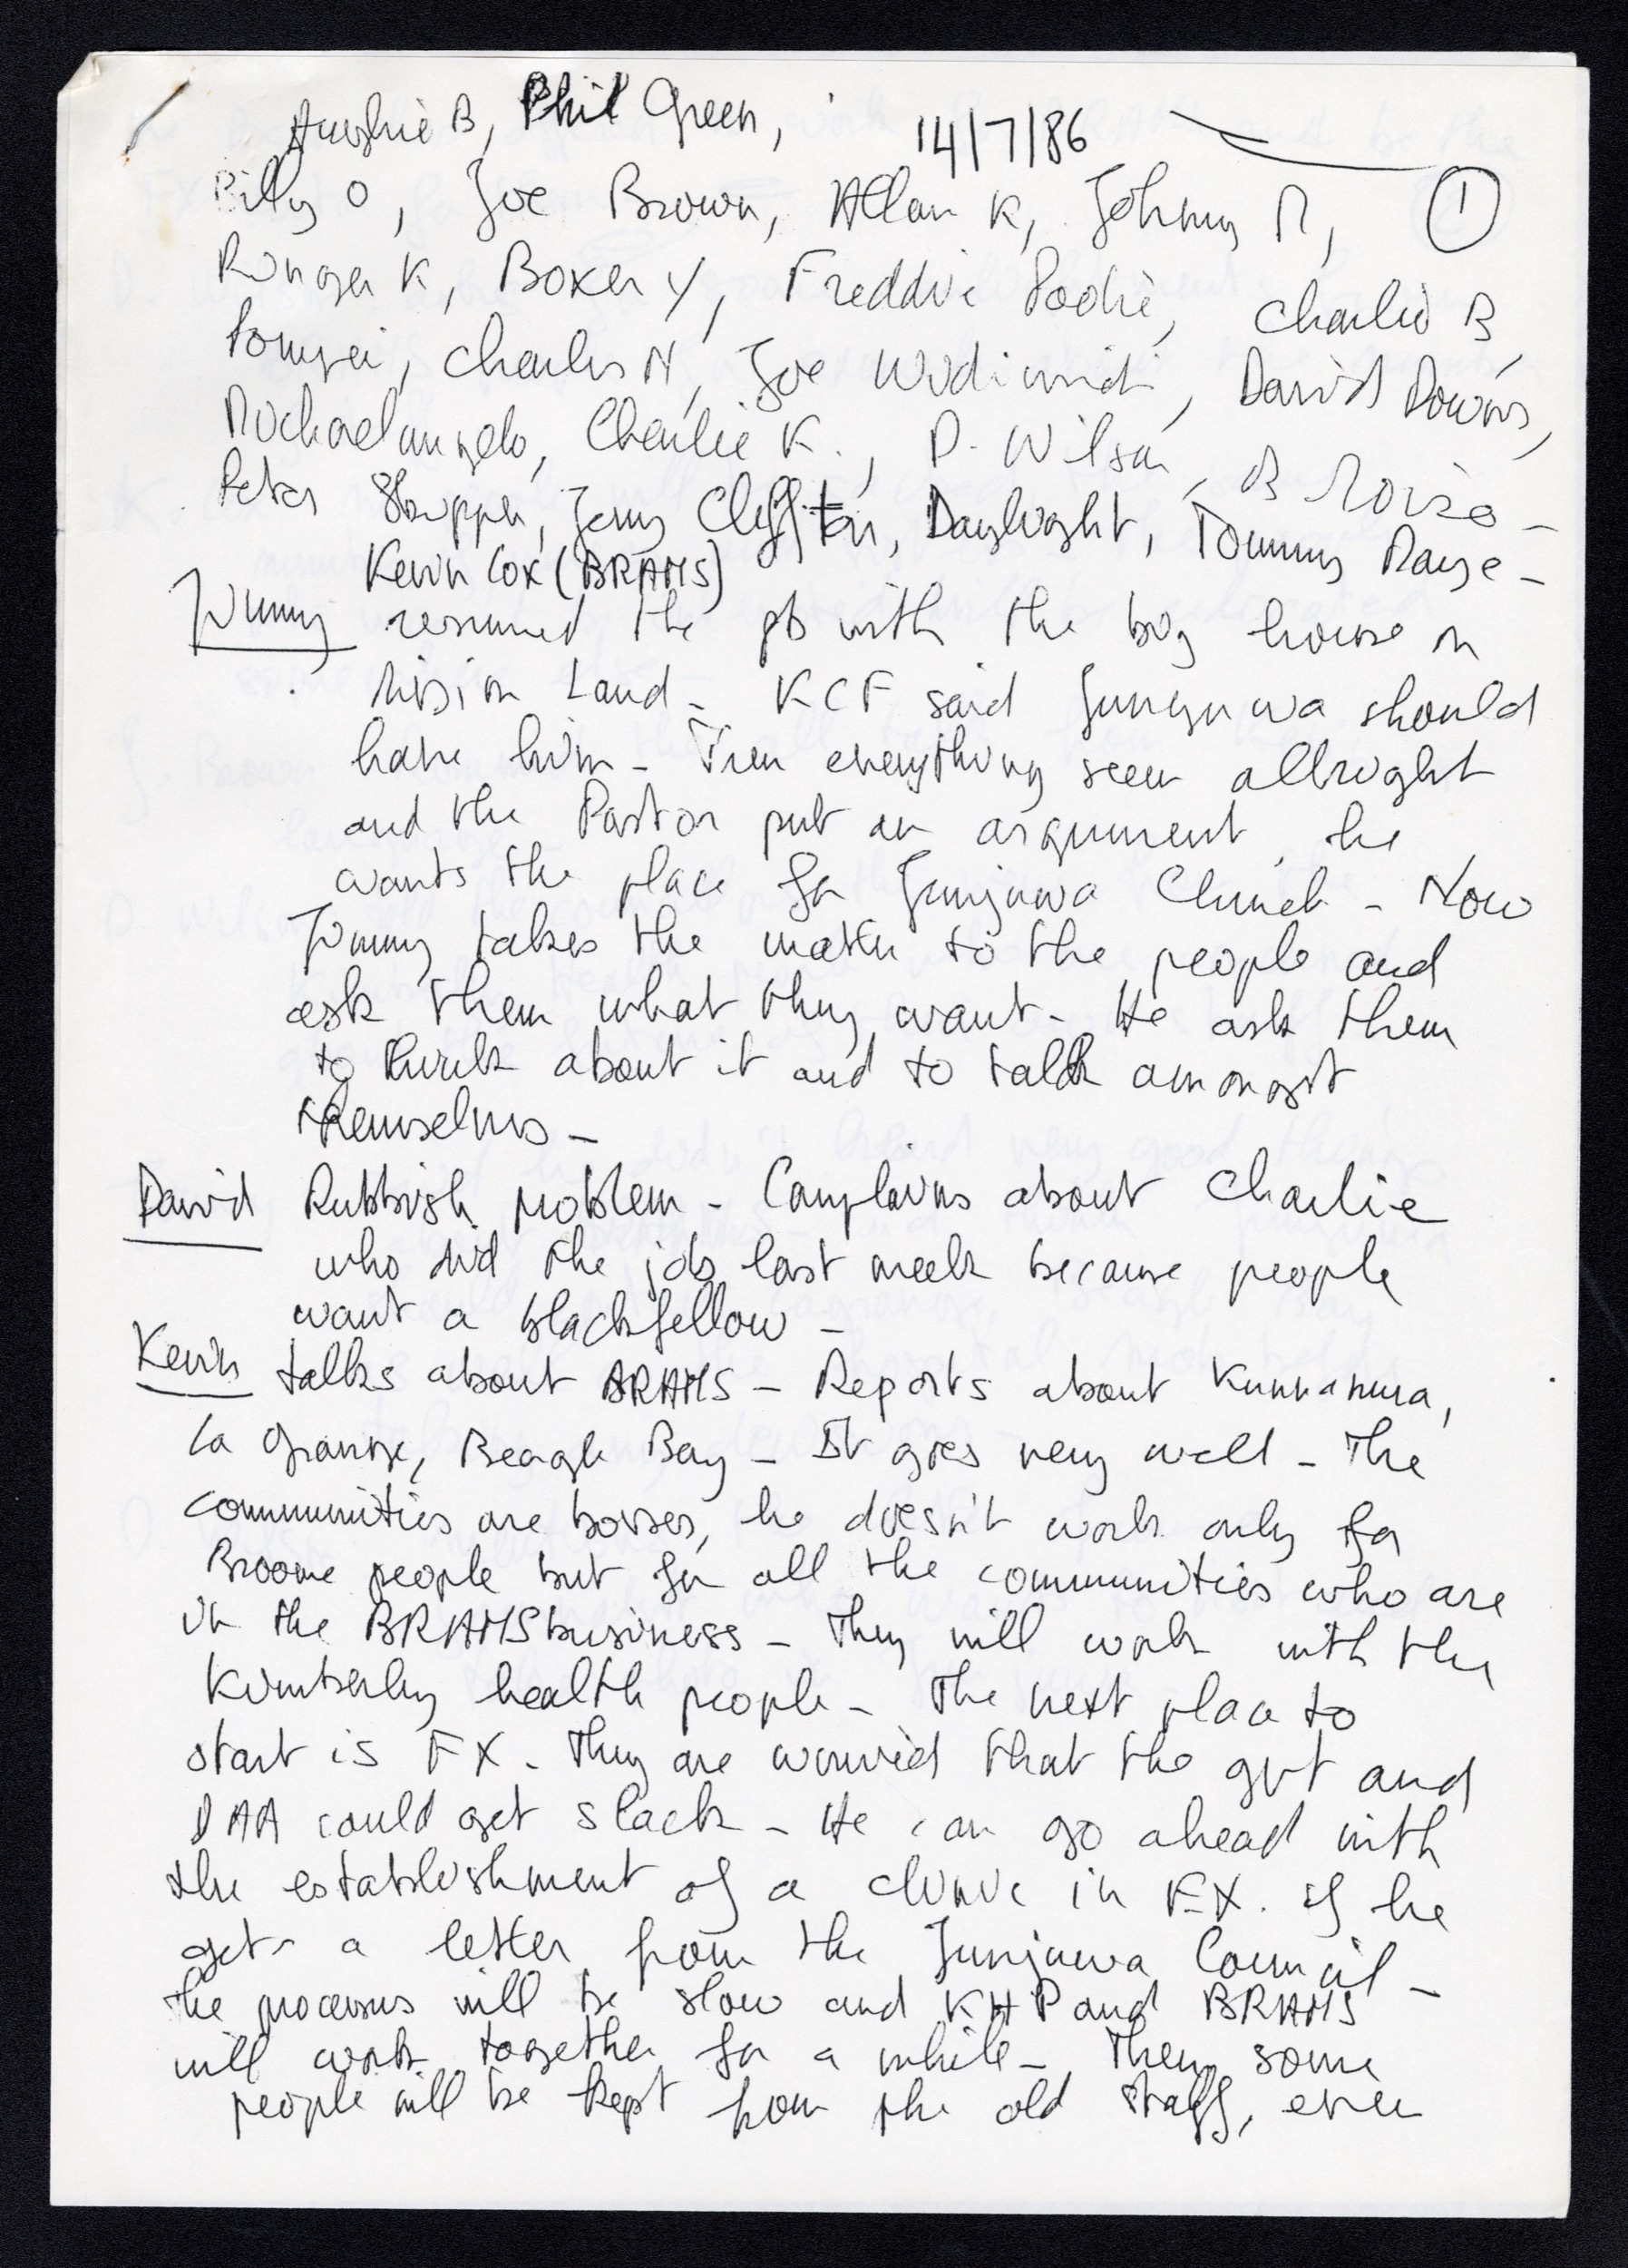 B, Phil Green, 14/7/86
Billy O, Joe Brown, Allan K, Johnny M, 1
K, Boxer Y, Freddie Charlie B,
Charles N, Joe David Downs,
Michaelangelo, Charlie K., D. Wilson, B
Peter Skipper, Clifton, Daylight, Tommy May -
Kevin Cox (BRAMS)
Jimmy resumed the pb with the big house on
Mission Land - KCF said Junjuwa should
have him - Then everything seem allright
and the Pastor put an argument, he
wants the place for Junjuwa Church - Now
Jimmy takes the matter to the people and
ask them what they want - He ask them
to think about it and to talk amongst
themselves -
David Rubbish problem - Complains about Charlie
who did the job last week because people
want a blackfellow -
Kevin talks about BRAMS - Reports about Kununurra,
La Grange, Beagle Bay - It goes very well - The
communities are bosses, he doesn't work only for
Broome people but for all the communities who are
in the BRAMS business - They will work with the
Kimberley health people - The next place to
start is FX - They are worried that the gvt and
DAA could get slack - He can go ahead with
the establishment of a clinic in FX. if he
gets a letter from the Junjuwa Council -
The processus will be slow and KHP and BRAMS
will work together for a while - Then some
people will be kept from the old staff, even